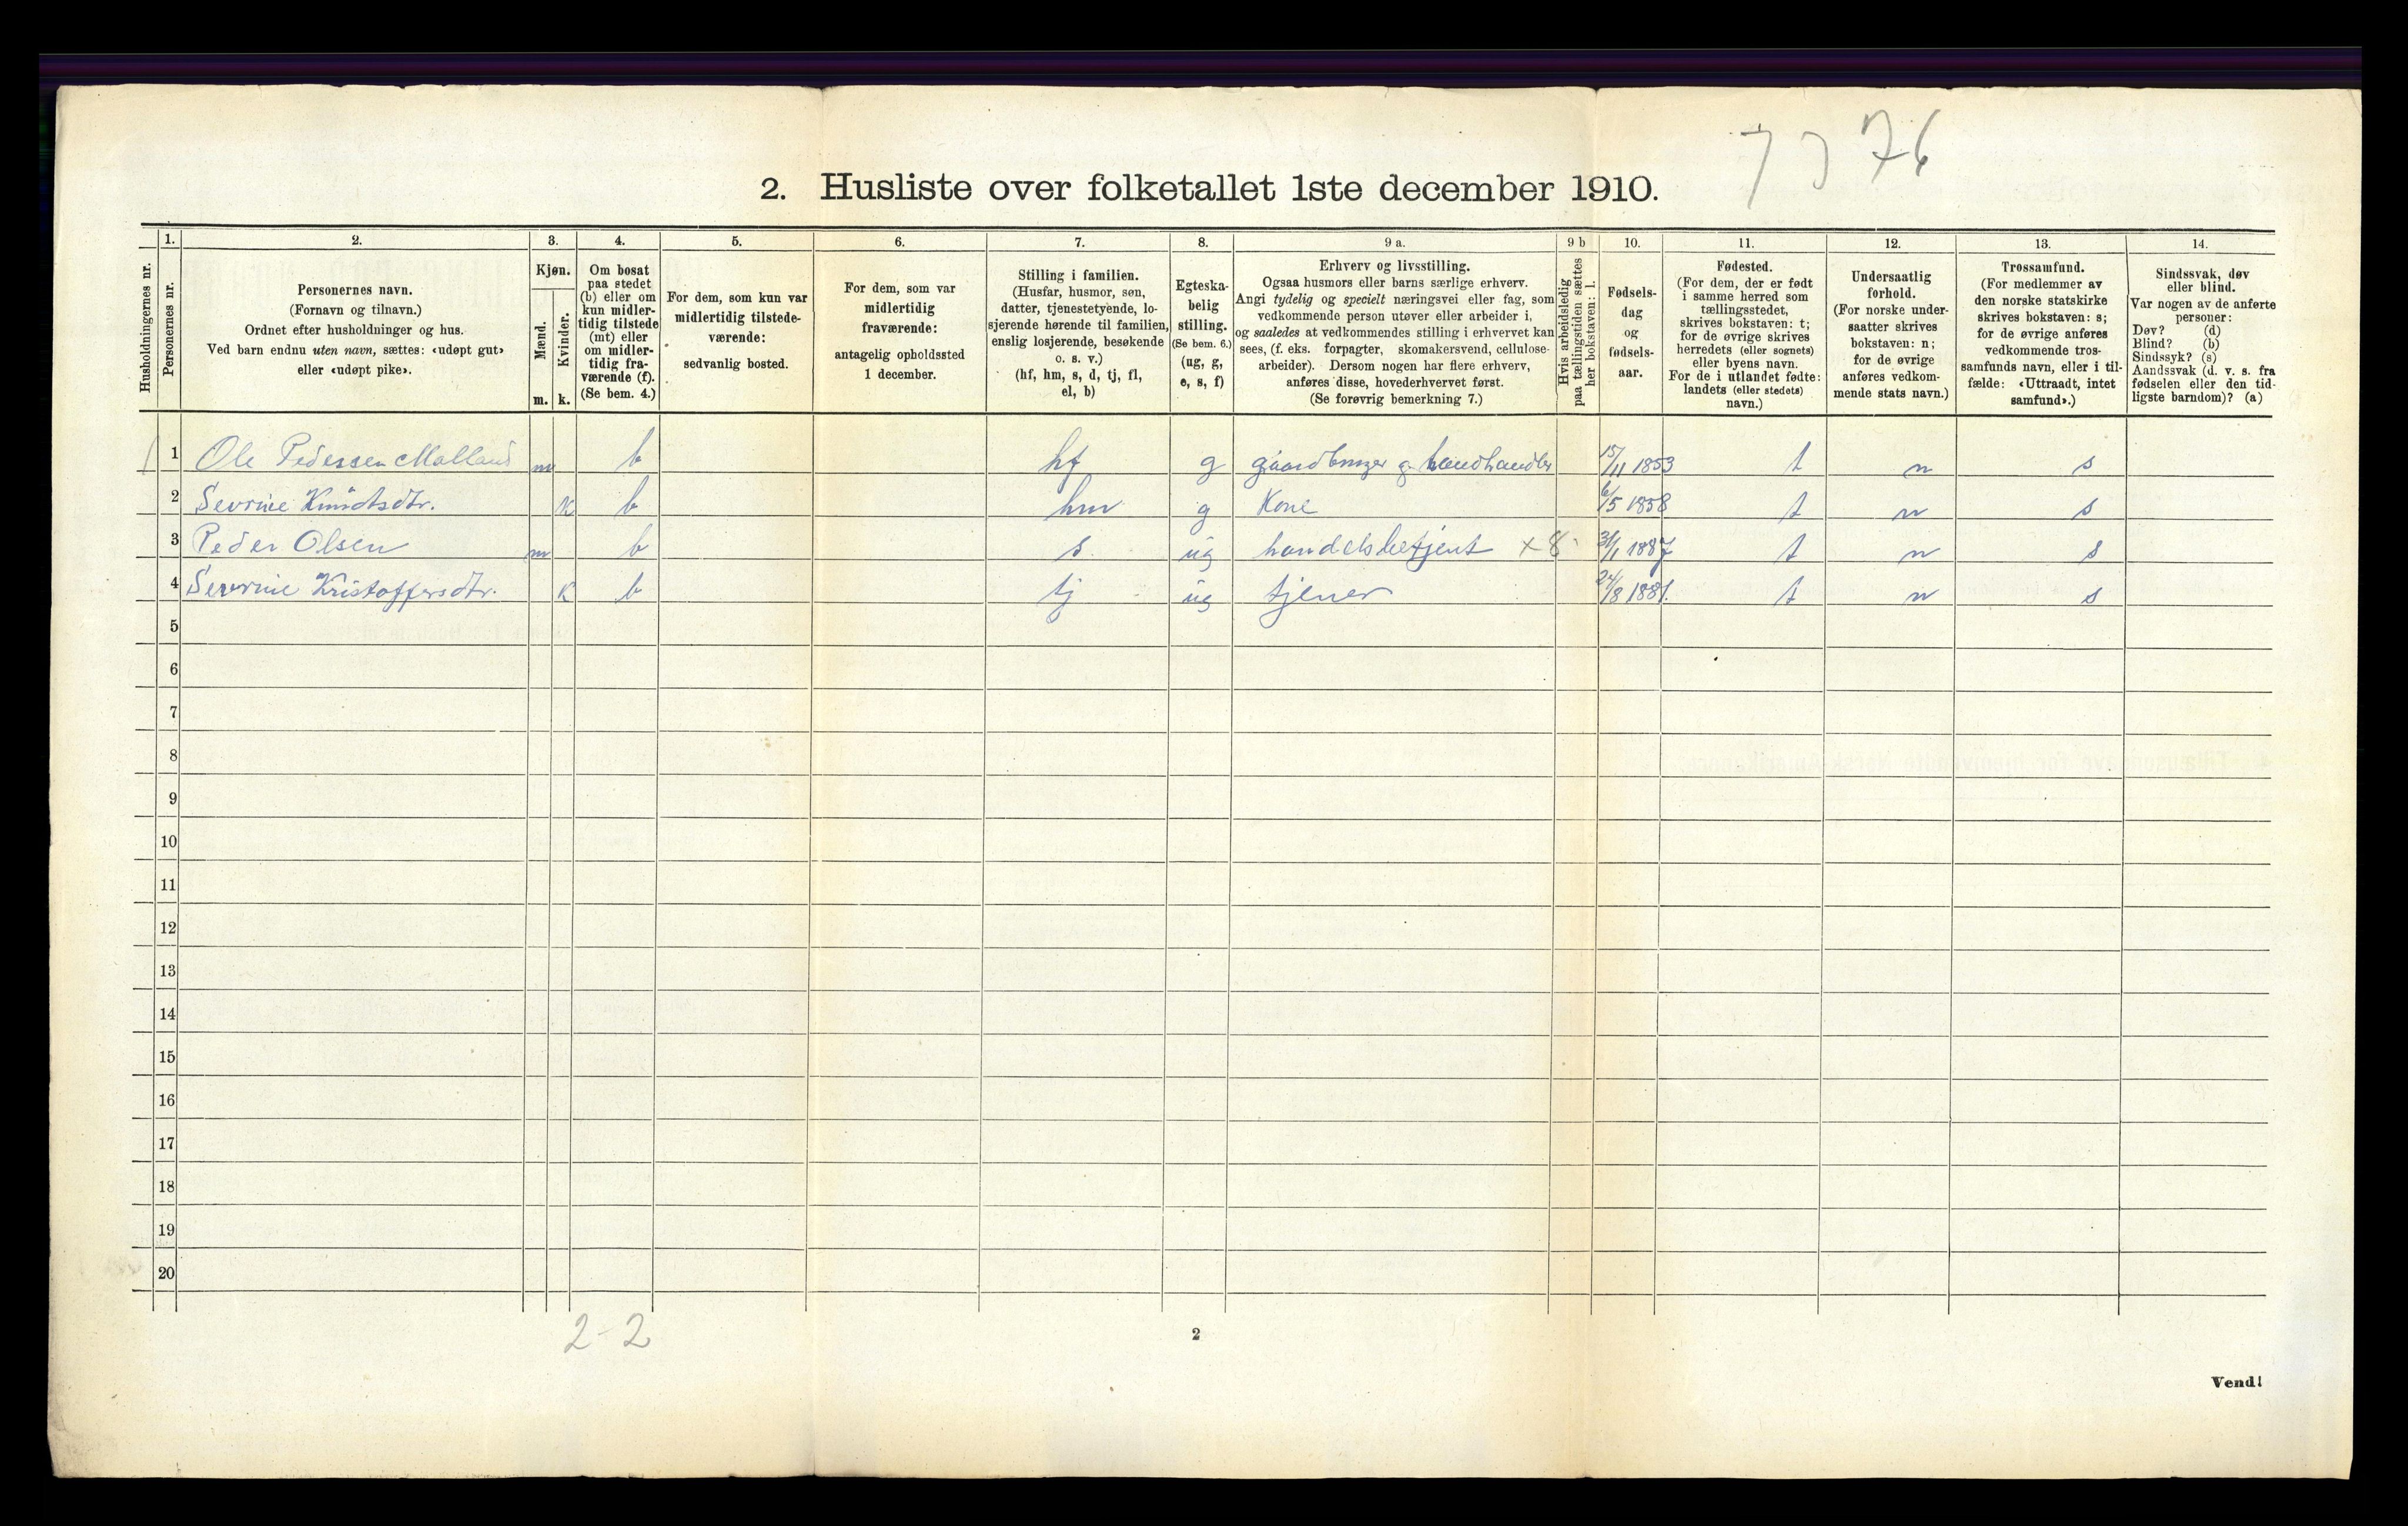 76
2. Husliste over folketallet 1ste december 1910.
Husholdningernes nr.
1. Personernes nr.
2. Personernes navn.
(Fornavn og tilnavn.)
Ordnet efter husholdninger og hus.
Ved barn endnu uten navn, sættes: «udøpt gut»
eller «udøpt pike».
3. Kjøn.
Mænd. m.
Kvinder. k.
4. Om bosat
paa stedet
(b) eller om
kun midler-
tidig tilstede
(mt) eller
om midler-
tidig fra-
værende (f).
(Se bem. 4.)
5. For dem, som kun var
midlertidig tilstede-
værende:
sedvanlig bosted.
6. For dem, som var
midlertidig
fraværende:
antagelig opholdssted
1 december.
7. Stilling i familien.
(Husfar, husmor, søn,
datter, tjenestetyende, lo-
sjerende hørende til familien,
enslig losjerende, besøkende
o. s. v.)
(hf, hm, s, d, tj, fl,
el, b)
8. Egteska-
belig
stilling.
(Se bem. 6.)
(ug, g,
e, s, f)
9 a. Erhverv og livsstilling.
Ogsaa husmors eller barns særlige erhverv.
Angi tydelig og specielt næringsvei eller fag, som
vedkommende person utøver eller arbeider i,
og saaledes at vedkommendes stilling i erhvervet kan
sees, (f. eks. forpagter, skomakersvend, cellulose-
arbeider). Dersom nogen har flere erhverv,
anføres disse, hovederhvervet først.
(Se forøvrig bemerkning 7.)
9 b Hvis arbeidsledig
paa tællingstiden sættes
her bokstaven: l.
10. Fødsels-
dag
og
fødsels-
aar.
11. Fødested.
(For dem, der er født
i samme herred som
tællingsstedet,
skrives bokstaven: t;
for de øvrige skrives
herredets (eller sognets)
eller byens navn.
For de i utlandet fødte:
landets (eller stedets)
navn.)
12. Undersaatlig
forhold.
(For norske under-
saatter skrives
bokstaven: n;
for de øvrige
anføres vedkom-
mende stats navn.)
13. Trossamfund.
(For medlemmer av
den norske statskirke
skrives bokstaven: s;
for de øvrige anføres
vedkommende tros-
samfunds navn, eller i til-
fælde: «Uttraadt, intet
samfund».)
14. Sindssvak, døv
eller blind.
Var nogen av de anførte
personer:
Døv? (d)
Blind? (b)
Sindssyk? (s)
Aandssvak (d. v. s. fra
fødselen eller den tid-
ligste barndom)? (a)
1 Ole Pedersen Malland m b hf g gaardbruger g. landhandler 15/11 1853 t n s
2 Sevrine Knudtsdtr. K b hm g Kone 6/5 1858 t n s
3 Peder Olsen m b s ug handelsbetjent x8 31/1 1887 t n s
4 Severine Kristoffersdtr. K b tj ug tjener 24/8 1881. t n s
5
6
7
8
9
10
11
12
13
14
15
16
17
18
19
20
2-2
2
Vend!